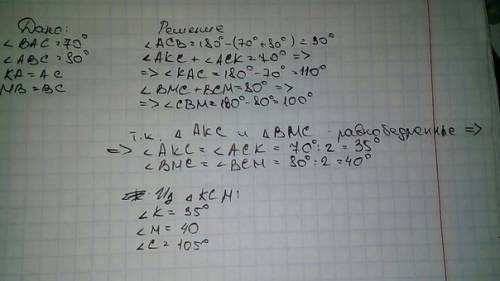 Дано:
∠BAC=70°
∠ABC=80°
KA=AC
MB=BC
Решение
∠ACB=180°-(70°+80°)=30°
∠AKC+∠ACK=70° =>
=> ∠KAC=180°-70°=110°
∠BMC+BCM=80° =>
=> ∠CBM=180°-80°=100°
т.к. △ AKC и △BMC - равнобедренные =>
=> ∠AKC=∠ACK= 70°:2=35°
∠BMC=∠BCM= 80°:2=40°
Из △KCM:
∠K=35°
∠M=40
∠C=105°